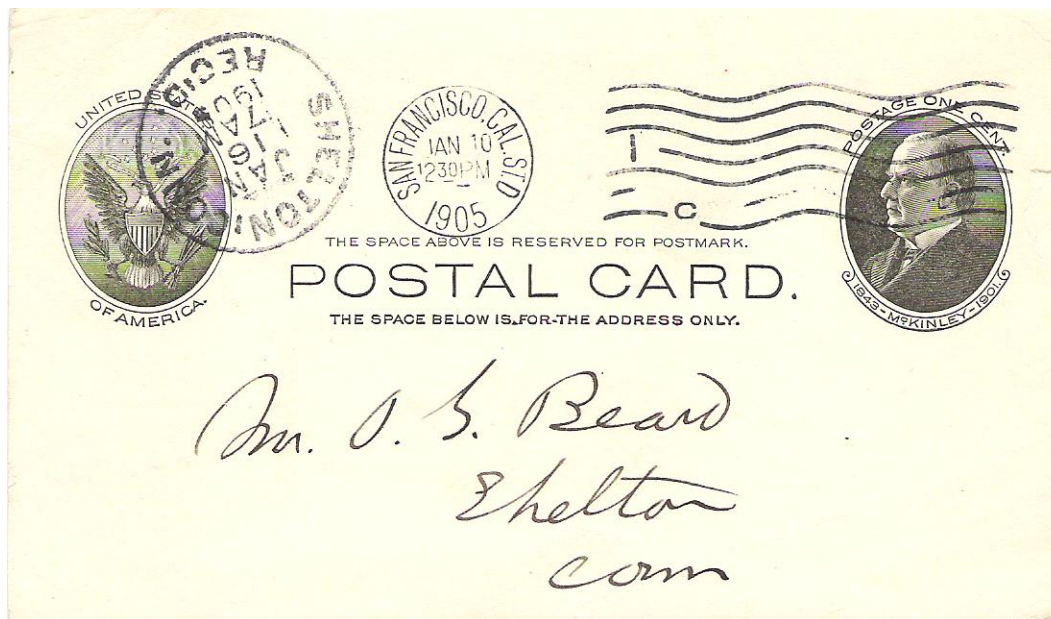 UNITED STATES
OF AMERICA.
SHELTON, CONN.
JAN 16
7 AM
1905
REC'D.
SAN FRANCISCO, CAL. STA. D
JAN 10
1230PM
1905
1
C
POSTAGE ONE CENT.
1843-McKINLEY-1901.
THE SPACE ABOVE IS RESERVED FOR POSTMARK.
POSTAL CARD.
THE SPACE BELOW IS FOR THE ADDRESS ONLY.
Mr. O. S. Beard
Shelton
Conn